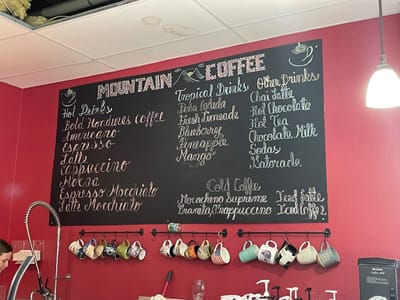 MOUNTAIN COFFEE
Hot Drinks
Bold Honduras Coffee
Americano
Espresso
Latte
Cappuccino
Mocha
Espresso Macchiato
Latte Macchiato
Tropical Drinks
Piña Colada
Fresh Limeade
Blueberry
Pineapple
Mango
Other Drinks
Chai Latte
Hot Chocolate
Hot Tea
Chocolate Milk
Sodas
Gatorade
Cold Coffee
Mocachino Supreme
Granita/Frappuccino
Iced Latte
Iced Coffee